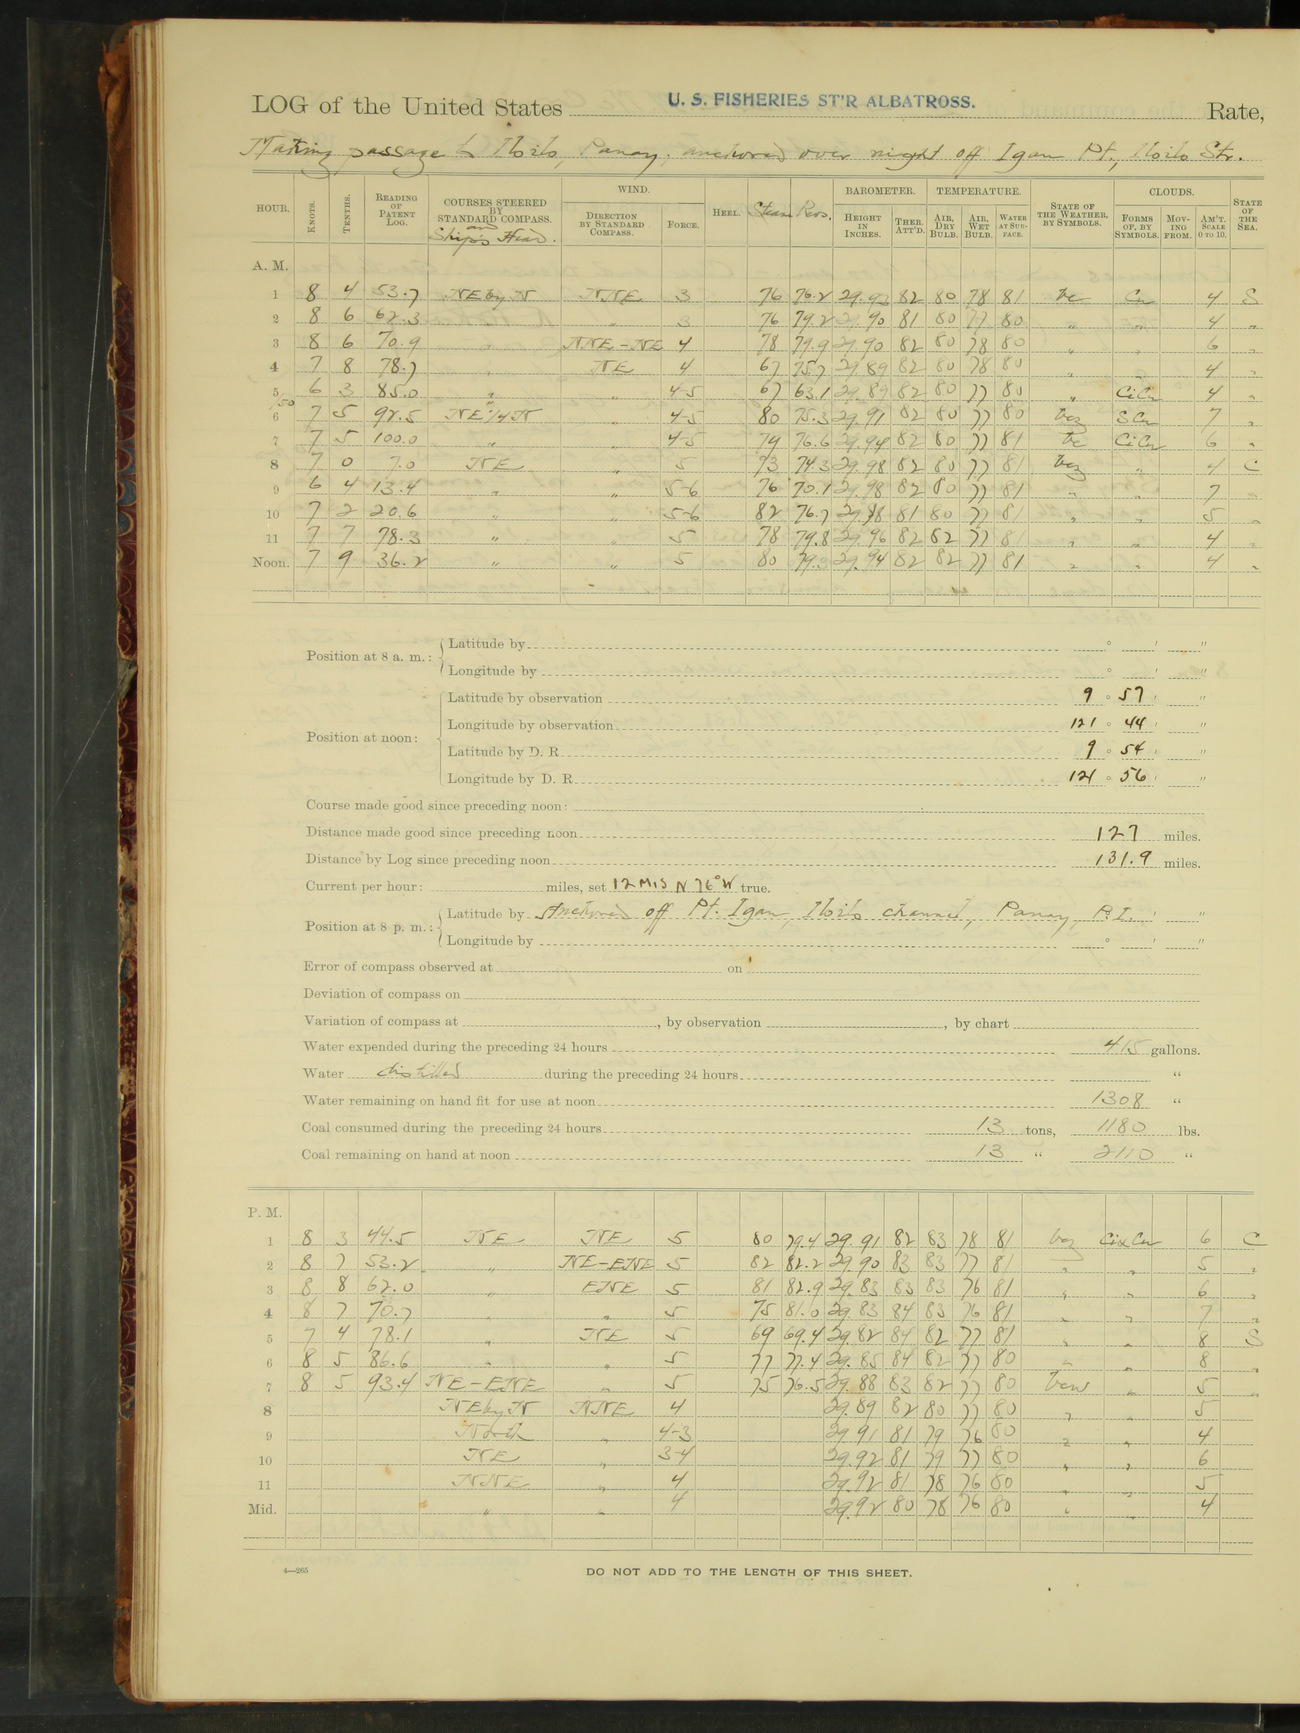 LOG of the United States U. S. FISHERIES ST'R ALBATROSS. Rate,
Making passage to Iloilo, Panay, anchored over night off Igan Pt., Iloilo Str.
HOUR. KNOTS. TENTHS. READING OF PATENT LOG. COURSES STEERED BY STANDARD COMPASS. and Ship's Head. WIND. DIRECTION BY STANDARD COMPASS. FORCE. HEEL. Steam Revs. BAROMETER. HEIGHT IN INCHES. THER. ATT'D. TEMPERATURE. AIR, DRY BULB. AIR, WET BULB. WATER AT SURFACE. STATE OF THE WEATHER, BY SYMBOLS. CLOUDS. FORMS OF, BY SYMBOLS. MOVING FROM. AM'T. SCALE 0 TO 10. STATE OF THE SEA.
A. M.
1 8 4 53.7 NE by N NNE 3 76 76.2 29.93 82 80 78 81 bc Cu 4 S
2 8 6 62.3 " " 3 76 79.2 29.90 81 80 77 80 " " 4 "
3 8 6 70.9 " NNE-NE 4 78 79.9 29.90 82 80 78 80 " " 6 "
4 7 8 78.7 " NE 4 67 75.7 29.89 82 80 78 80 " " 4 "
5 6 3 85.0 " " 4-5 67 63.1 29.89 82 80 77 80 " CiCu 4 "
6 7 5 92.5 NE 1/4 N " 4-5 80 75.3 29.91 82 80 77 80 bcz SCu 7 "
7 7 5 100.0 " " 4-5 79 76.6 29.94 82 80 77 81 bc CiCu 6 "
8 7 0 7.0 NE " 5 73 74.3 29.98 82 80 77 81 bcz " 4 C
9 6 4 13.4 " " 5-6 76 70.1 29.98 82 80 77 81 " " 7 "
10 7 2 20.6 " " 5-6 82 76.7 29.98 81 80 77 81 " " 5 "
11 7 7 78.3 " " 5 78 79.8 29.96 82 82 77 81 " " 4 "
Noon. 7 9 36.2 " " 5 80 79.3 29.94 82 82 77 81 " " 4 "
Position at 8 a. m.: Latitude by ° ' "
Longitude by ° ' "
Position at noon: Latitude by observation 9 ° 57 ' "
Longitude by observation 121 ° 44 ' "
Latitude by D. R 9 ° 54 ' "
Longitude by D. R. 121 ° 56 ' "
Course made good since preceding noon:
Distance made good since preceding noon 127 miles.
Distance by Log since preceding noon 131.9 miles.
Current per hour: miles, set 12 Mls N 76° W true.
Position at 8 p. m.: Latitude by Anchored off Pt. Igan, Iloilo channel, Panay, P.I. ' "
Longitude by ° ' "
Error of compass observed at on
Deviation of compass on
Variation of compass at , by observation , by chart
Water expended during the preceding 24 hours 415 gallons.
Water distilled during the preceding 24 hours "
Water remaining on hand fit for use at noon 1308 "
Coal consumed during the preceding 24 hours 13 tons, 1180 lbs.
Coal remaining on hand at noon 13 " 2110 "
P. M.
1 8 3 44.5 NE NE 5 80 79.4 29.91 82 83 78 81 bcz Ci&Cu 6 C
2 8 7 53.2 " NE-ENE 5 82 82.2 29.90 83 83 77 81 " " 5 "
3 8 8 62.0 " ENE 5 81 82.9 29.83 83 83 76 81 " " 6 "
4 8 7 70.7 " " 5 75 81.0 29.83 84 83 76 81 " " 7 "
5 7 4 78.1 " NE 5 69 69.4 29.82 84 82 77 81 " " 8 S
6 8 5 86.6 " " 5 77 77.4 29.85 84 82 77 80 " " 8 "
7 8 5 93.4 NE-ENE " 5 75 76.5 29.88 83 82 77 80 " 5 "
8 NE by N NNE 4 29.89 82 80 77 80 " " 5
9 North " 4-3 29.91 81 79 76 80 " " 4
10 NE " 3-4 29.92 81 79 77 80 " " 6
11 NNE " 4 29.92 81 78 76 80 " " 5
Mid. " " 4 29.92 80 78 76 80 " " 4
4—265
DO NOT ADD TO THE LENGTH OF THIS SHEET.